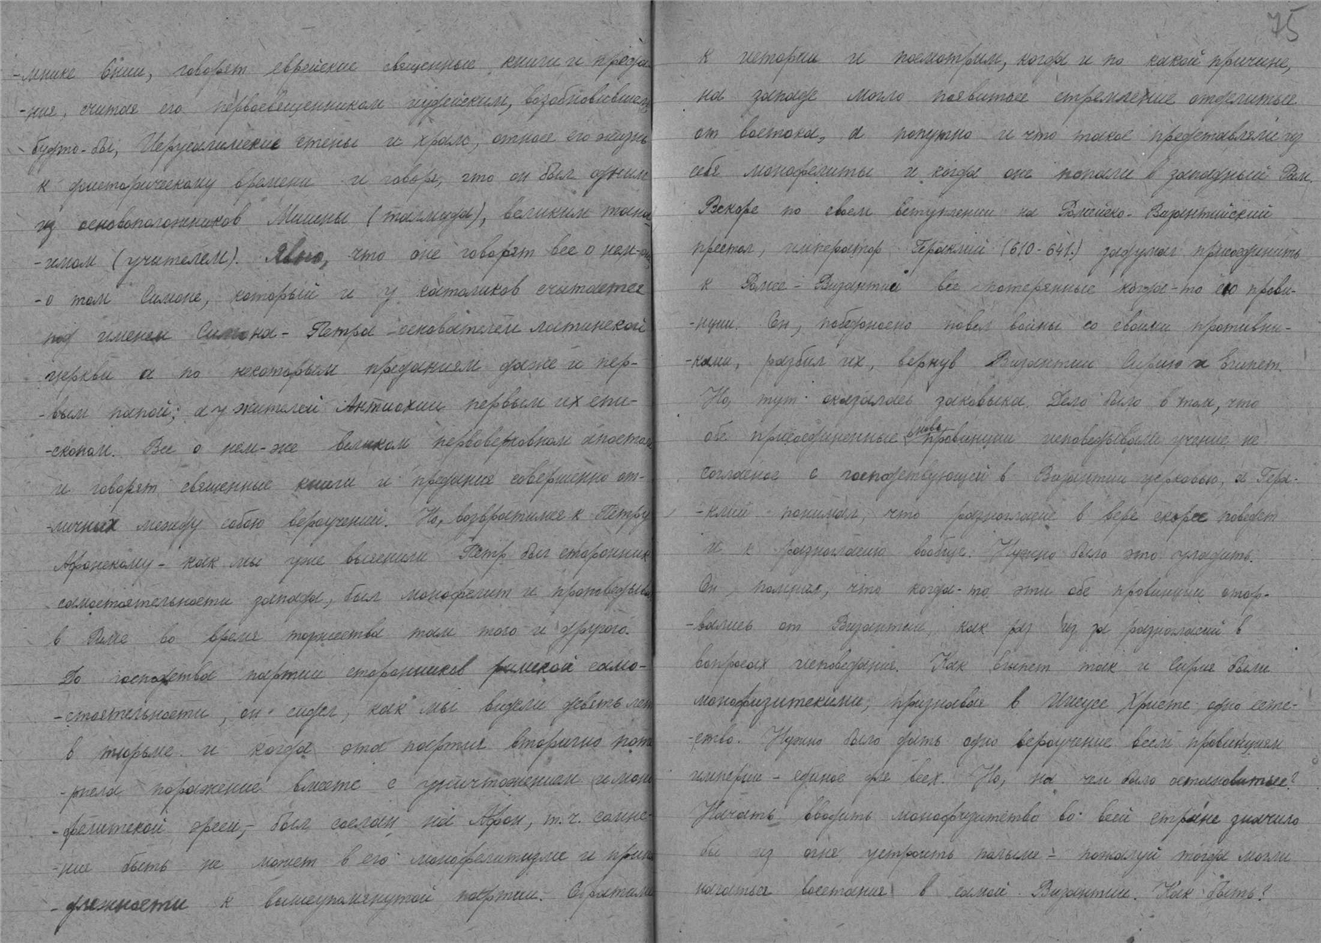 75
-мнике Сии, говорят еврейские священные книги и преда-
-ния, считая его первосвященником иудейским, возобновившим
будто-бы, Иерусалимские стены и храм, относя его жизнь
к доисторическому времени и говоря, что он был одним
из основоположников Мишны (талмуда), великим тана-
-имом (учителем). Явно, что они говорят все о нем-же,
-о том Симоне, который и у католиков считается
под именем Симона-Петра - основателем латинской
церкви и по некоторым преданиям даже и пер-
-вым папой; а у жителей Антиохии первым их епи-
-скопом. Все о нем-же великом первоверховном апостоле
и говорят священные книги и предания совершенно от-
-личных между собою вероучений. Но, возвратимся к Петру
Афонскому - как мы уже выяснили Петр был сторонник
самостоятельности запада, был монофелит и проповедывал
в Риме во время торжества там того и другого.
До господства партии сторонников римской само-
-стоятельности, он сидел, как мы видели девять лет
в тюрьме и когда эта партия вторично потер-
-пела поражение вместе с уничтожением и моно-
-фелитской ереси,- был сослан на Афон, т.ч. сомне-
-ния быть не может в его монофелитизме и прина-
-длежности к вышеупомянутой партии. Обратимся
к истории и посмотрим, когда и по какой причине,
на западе могло появиться стремление отделиться
от востока, а попутно и что такое представляли из
себя монофелиты и когда они попали в западный Рим.
Вскоре по своем вступлении на Ромейско-Византийский
престол, император Гераклий (610-641.) задумал присоединить
к Ромее-Византии все потерянные когда-то ею прови-
-нции. Он, победоносно повел войны со своими противни-
-ками, разбил их, вернув Византии Сирию и Египет.
Но, тут оказалась заковыка. Дело было в том, что
обе присоединенные вновь провинции исповедывали учение не
согласное с господствующей в Византии церковью, а Гера-
-клий понимал, что разногласие в вере скоро поведет
и к разногласию вообще. Нужно было это уладить.
Он, помнил, что когда-то эти обе провинции отор-
-вались от Византии, как раз из за разногласий в
вопросах исповедания. Как Египет так и Сирия были
монофизитскими, признавая в Иисусе Христе одно есте-
-ство. Нужно было дать одно вероучение всем провинциям
империи - единое для всех. Но, на чем было остановиться?
Начать вводить монофизитство во всей стране значило
бы из огня устроить полымя - пожалуй тогда могли
начаться восстания в самой Византии. Как быть?